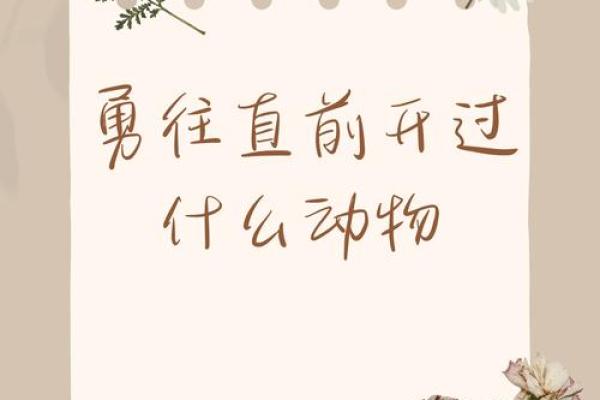 勇往直前开过
什么动物